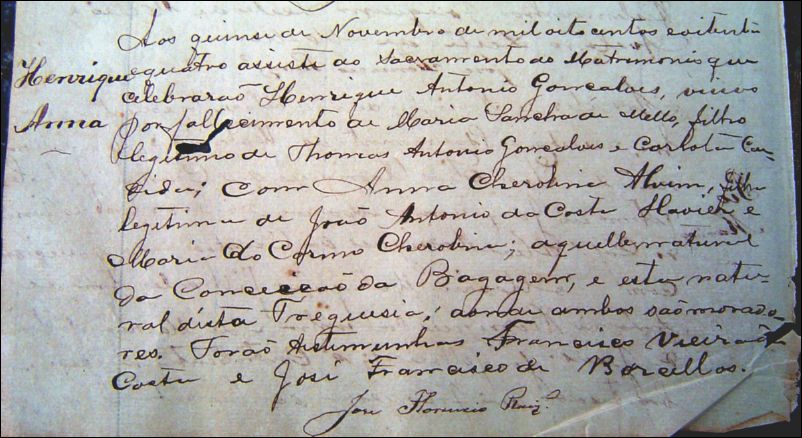 Aos quinse de Novembro de mil oito centos e oitenta
Henrique e quatro assisti ao Sacramento do Matrimonio que
celebrarão Henrique Antonio Gonçalves, viuvo
Anna por fallecimento de Maria Sancha de Mello, filho
legitimo de Thomas Antonio Gonçalves e Carlota Can-
dida; com Anna Cherobina Alvim, filha
legitima de João Antonio da Costa Xavier e
Maria do Carmo Cherobina; aquelle natural
da Conceição da Bagagem, e esta natu-
ral d'esta Freguesia, aonde ambos são morado-
res. Forão testimunhas Francisco Vieira
Costa e José Francisco de Barcellos.
José Florencio Roiz.